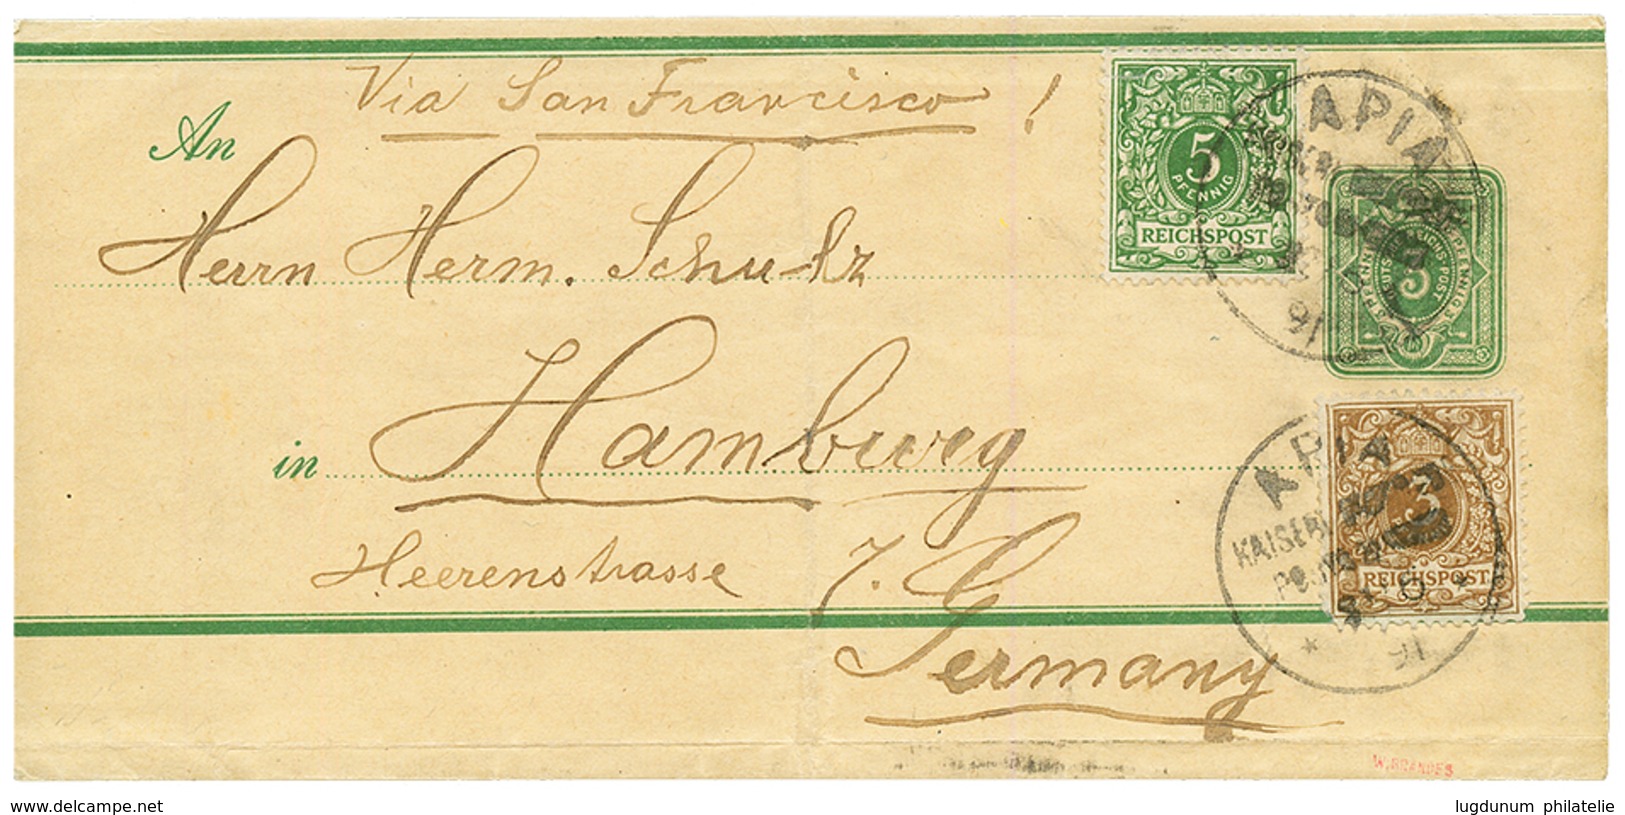 Via San Francisco !
An
Herrn Herm. Schultz
in Hamburg
Heerenstrasse 7. G.
Germany
5
PFENNIG
REICHSPOST
APIA
91
5
3
REICHSPOST
APIA
KAISERL
91
W.BRANDES
www.delcampe.net
lugdunum philatelie